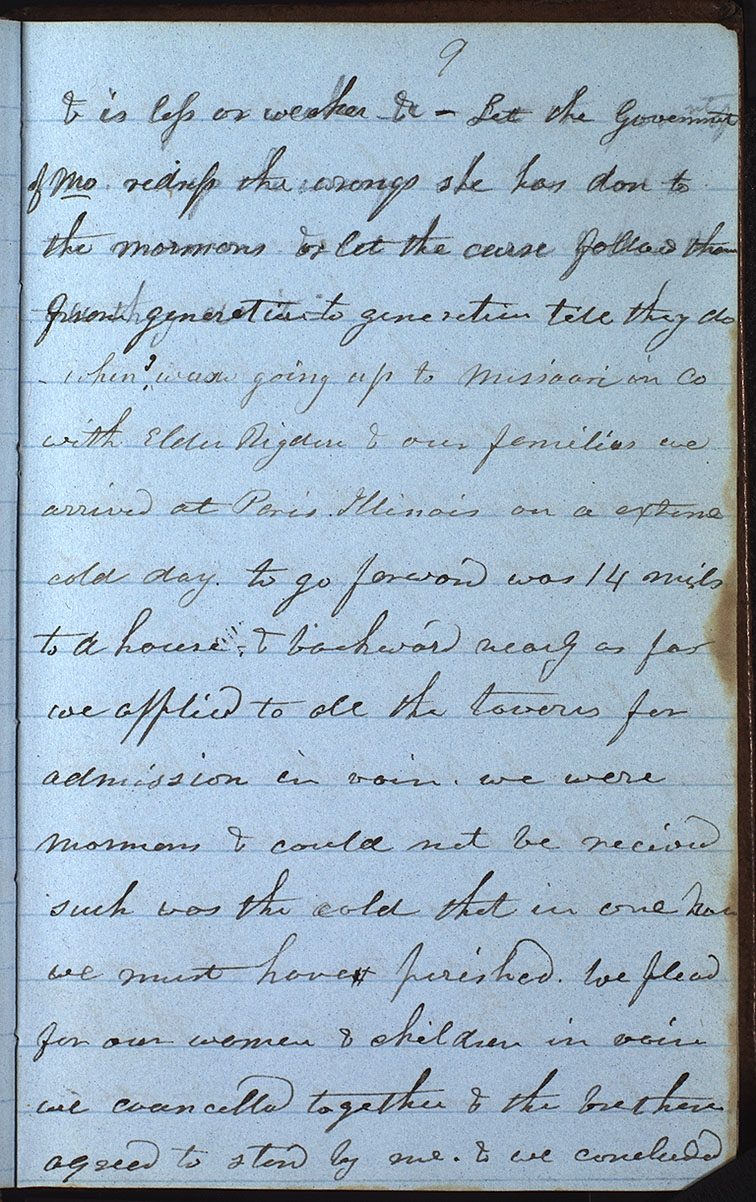 9
& is less or weaker &c – Let the Government
of Mo. redress the wrongs she has don to
the mormons or let the curse follow them
from generation to generation till they do
– when I was going up to Missouri in co
with Elder Rigdon & our families we
arrived at Paris Illinois on a extme
cold day. to go forward was 14 mils
to a house, & backward nearly as far
we applied to all the taverns for
admission in vain. we were
mormons & could not be recived
such was the cold that in one hour
we must have perished. we plead
for our women & children in vain
we councelled together & the brethern
agreed to stand by me. & we concluded